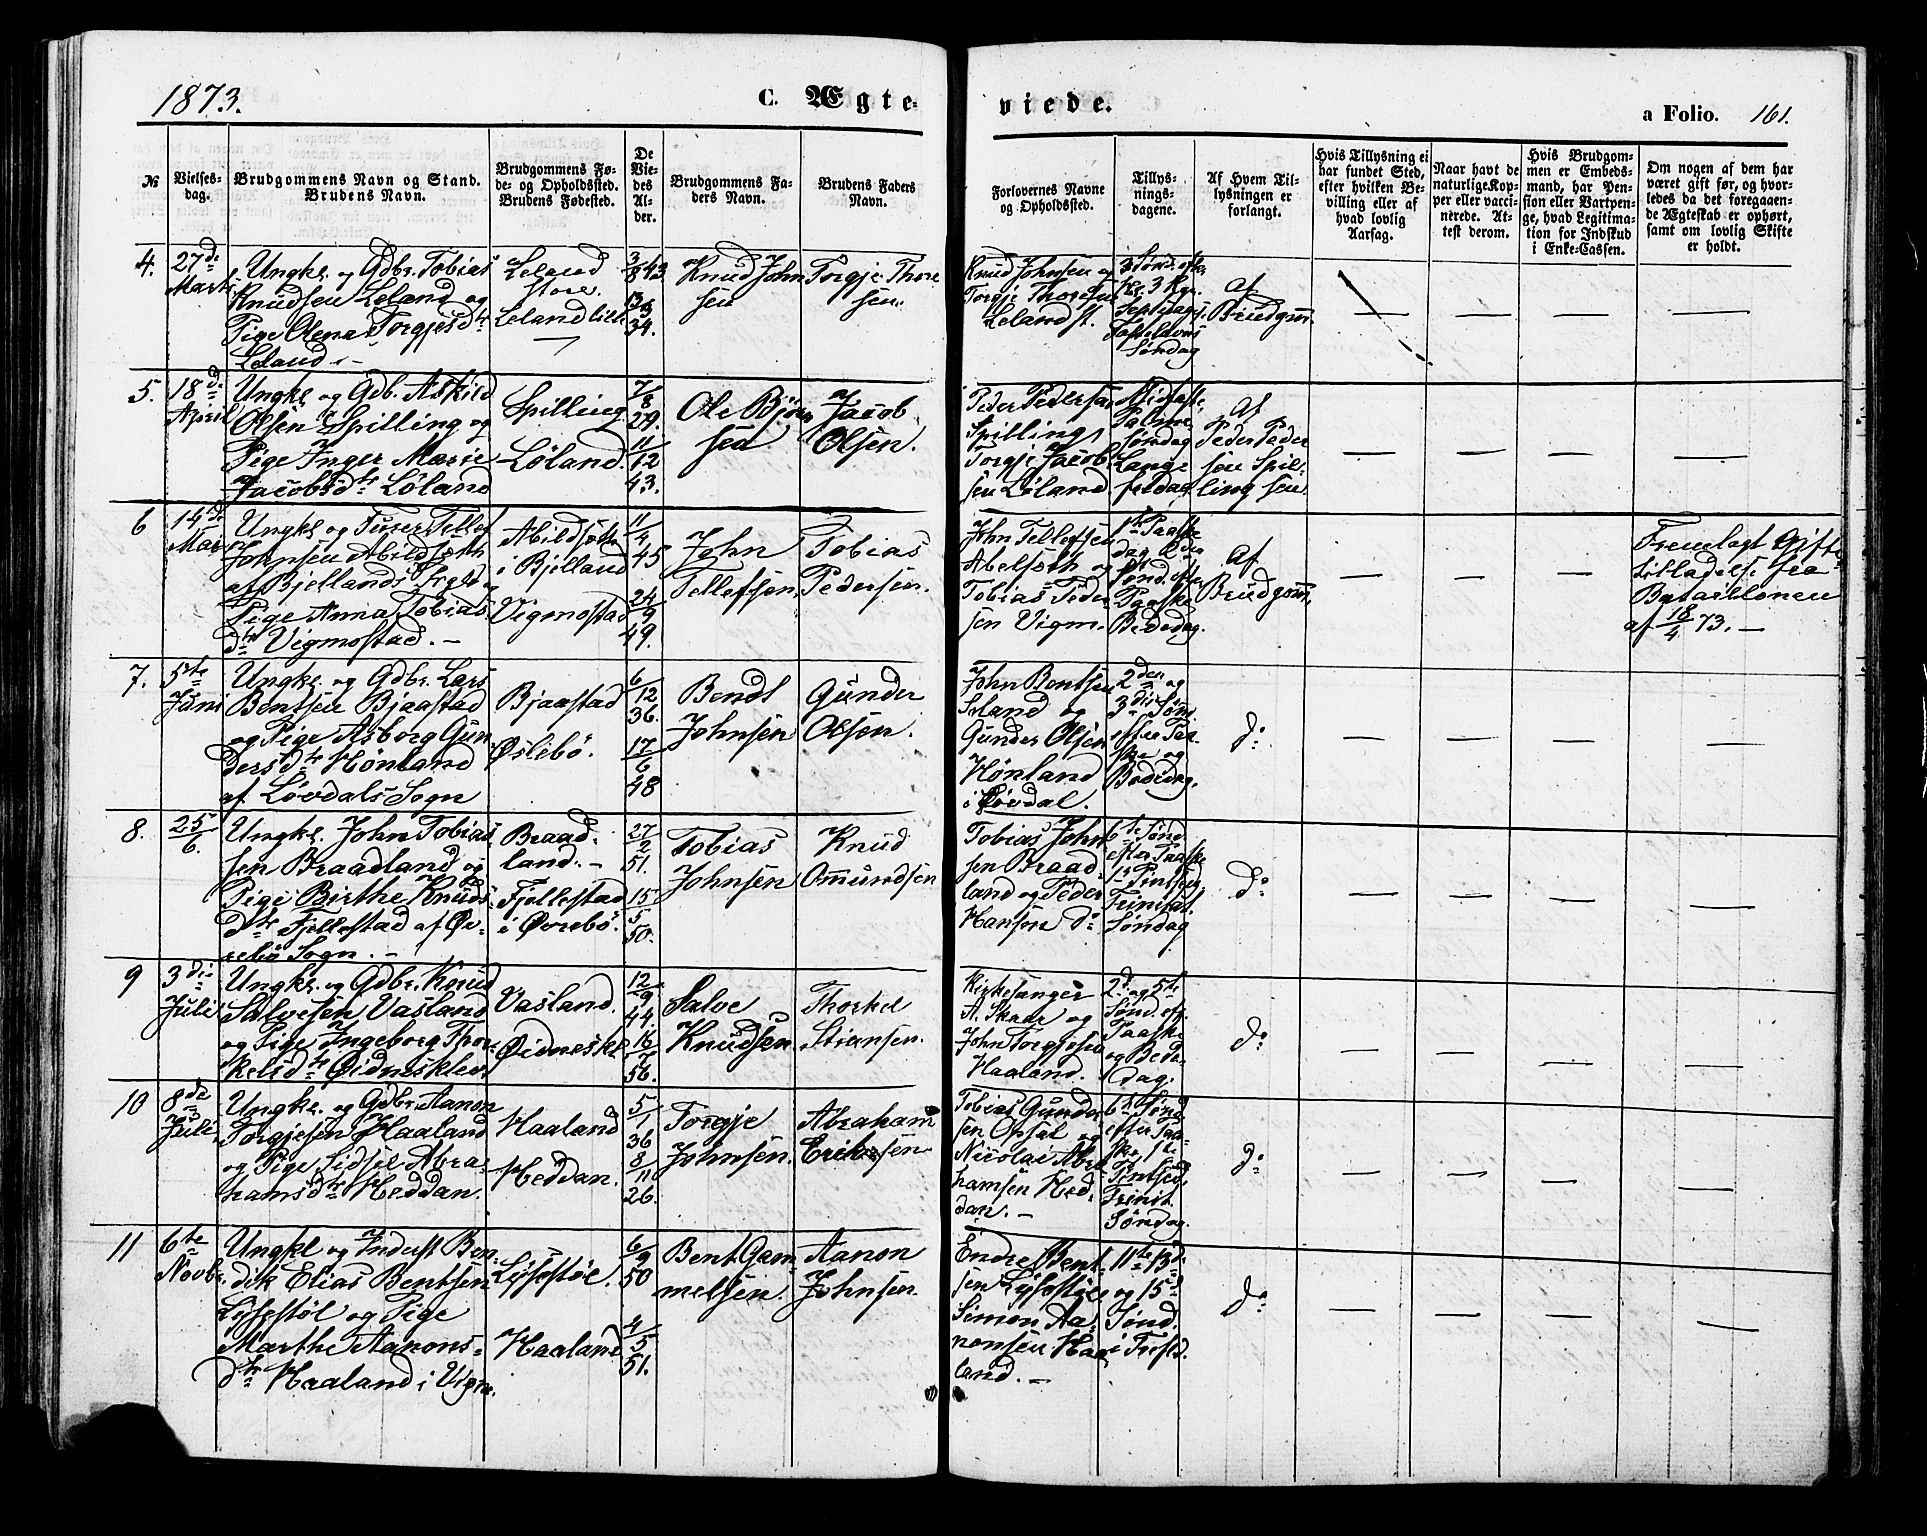 1873.
C. Ægte-
viede.
a Folio. 161.
№
Vielses-
dag.
Brudgommens Navn og Stand.
Brudens Navn.
Brudgommens Fø-
de- og Opholdssted.
Brudens Fødested.
De
Vie-
des
Al-
der.
Brudgommens Fa-
ders Navn.
Brudens Faders
Navn.
Forlovernes Navne
og Opholdssted.
Tillys-
nings-
dagene.
Af Hvem Til-
lysningen er
forlangt.
Hvis Tillysning ei
har fundet Sted,
efter hvilken Be-
villing eller af
hvad lovlig
Aarsag.
Naar havt de
naturlige Kop-
per eller vacci-
nerede. At-
test derom.
Hvis Brudgom-
men er Embeds-
mand, har Pen-
sion eller Vartpen-
ge, hvad Legitima-
tion for Indskud
i Enke-Cassen.
Om nogen af dem har
været gift før, og hvor-
ledes da det foregaaen-
de Ægteskab er ophørt,
samt om lovlig Skifte
er holdt.
4.
27de
Marts
Ungk. og Gdbr. Tobias
Knudsen Leland og
Pige Olena Torgjesdtr
Leland.
Leland
store.
Leland lille
3/8 43
13/3
34.
Knud John
sen
Torgje Thore
sen.
Knud Johnsen og
Torgje Thoresen
Leland st.
3 Sønd. efter
H. 3 Kgr.
Septuages.
Fastelavns
Søndag
af
Brudgom.
5.
18de
April
Ungk. og Gdb. Askild
Olsen Spilling og
Pige Inger Marie
Jacobsdtr Løland
Spilling
Løland.
7/8
29.
11/12
43.
Ole Bjørn
sen
Jacob
Olsen.
Peder Pedersen
Spilling,
Torgje Jacob
sen Løland.
Midfaste,
Palme
søndag
Lang-
fredag
Af
Peder Peder
sen Spil-
ling sen.
6
14de
Mai
Ungk. og Furer Tellef
Johnsen Abildsøth
af Bjellands Sogn og
Pige Anna Tobias
dtr Vigmostad. —
Abildsøth
i Bjelland
Vigmostad
11/4
45
24/9
49.
John
Tellefsen
Tobias
Pedersen.
John Tellefsen
Abelsøth og
Tobias Peder
sen Vigm.
1ste Paaske
dag, 2den
Sønd. efter
Paaske
Bededag.
af
Brudgom.
Fremlagt Gifte
tilladelse fra
Bataillonen
af 18/4 73. —
7.
5te
Juni
Ungk. og Gdbr. Lars
Bentsen Bjaastad
og Pige Asborg Gun
dersdtr Hønland
af Løvdals Sogn
Bjaastad
Øslebö.
6/12
36.
17/6
48
Bendt
Johnsen
Gunder
Olsen.
John Bentsen
Island og
Gunder Olsen
Hønland
i Løvdal.
2den og
3die Sønd.
efter Paa-
ske og
Bededag.
do
8.
25/6.
Ungk. John Tobias
sen Braadland og
Pige Birthe Knuds
dtr Fjellestad af Øv-
rebö Sogn. —
Braad-
land. —
Fjellestad
i Øvrebö.
27/2
51.
15/5
50.
Tobias
Johnsen
Knud
Omundsen
Tobias John
sen Braad-
land og Peder
Hansen do
6te Sønd.
efter Paaske
1ste Pintsed.
Trinitat.
Søndag
do
9
3die
Juli
Ungk. og Gdbr. Knud
Salvesen Vasland
og Pige Ingeborg Thor-
kelsdtr Øidnesklev
Vasland.
Øidneskl.
12/9
44.
16/7
56.
Salve
Knudsen.
Thorkel
Stiansen.
Kirkesanger
A. Skaar og
John Torgjesen
Haaland.
2d. og 5te
Sønd. eft.
Paaske
og Bede-
dag.
do
10
8de
Juli
Ungk. og Gdbr. Aanon
Torgjesen Haaland
og Pige Sidsel Abra-
hamsdtr Heddan.
Haaland
Heddan.
5/1
36
8/11
26.
Torgje
Johnsen.
Abraham
Eriksen
Tobias Gunder
sen Opsal og
Nicolai Abra
hamsen Hed-
dan. —
6te Sønd.
efter Paa-
ske, 1ste
Pintsed.
Trinit.
Søndag.
do
11
6te
Novbr.
Ungk. og Inderst Ben-
dik Elias Bentsen
Lyfestöl og Pige
Marthe Aanons-
dtr Haaland i Vigm.
Lyfestöl.
Haaland
6/9
50
4/5
51.
Bent Gam-
melsen.
Aanon
Johnsen.
Endre Bent-
sen Lyfestöl og
Simon Aa-
nonsen Haa-
land. —
11te 13de
og 15de
Sønd.
i Trefd.
do